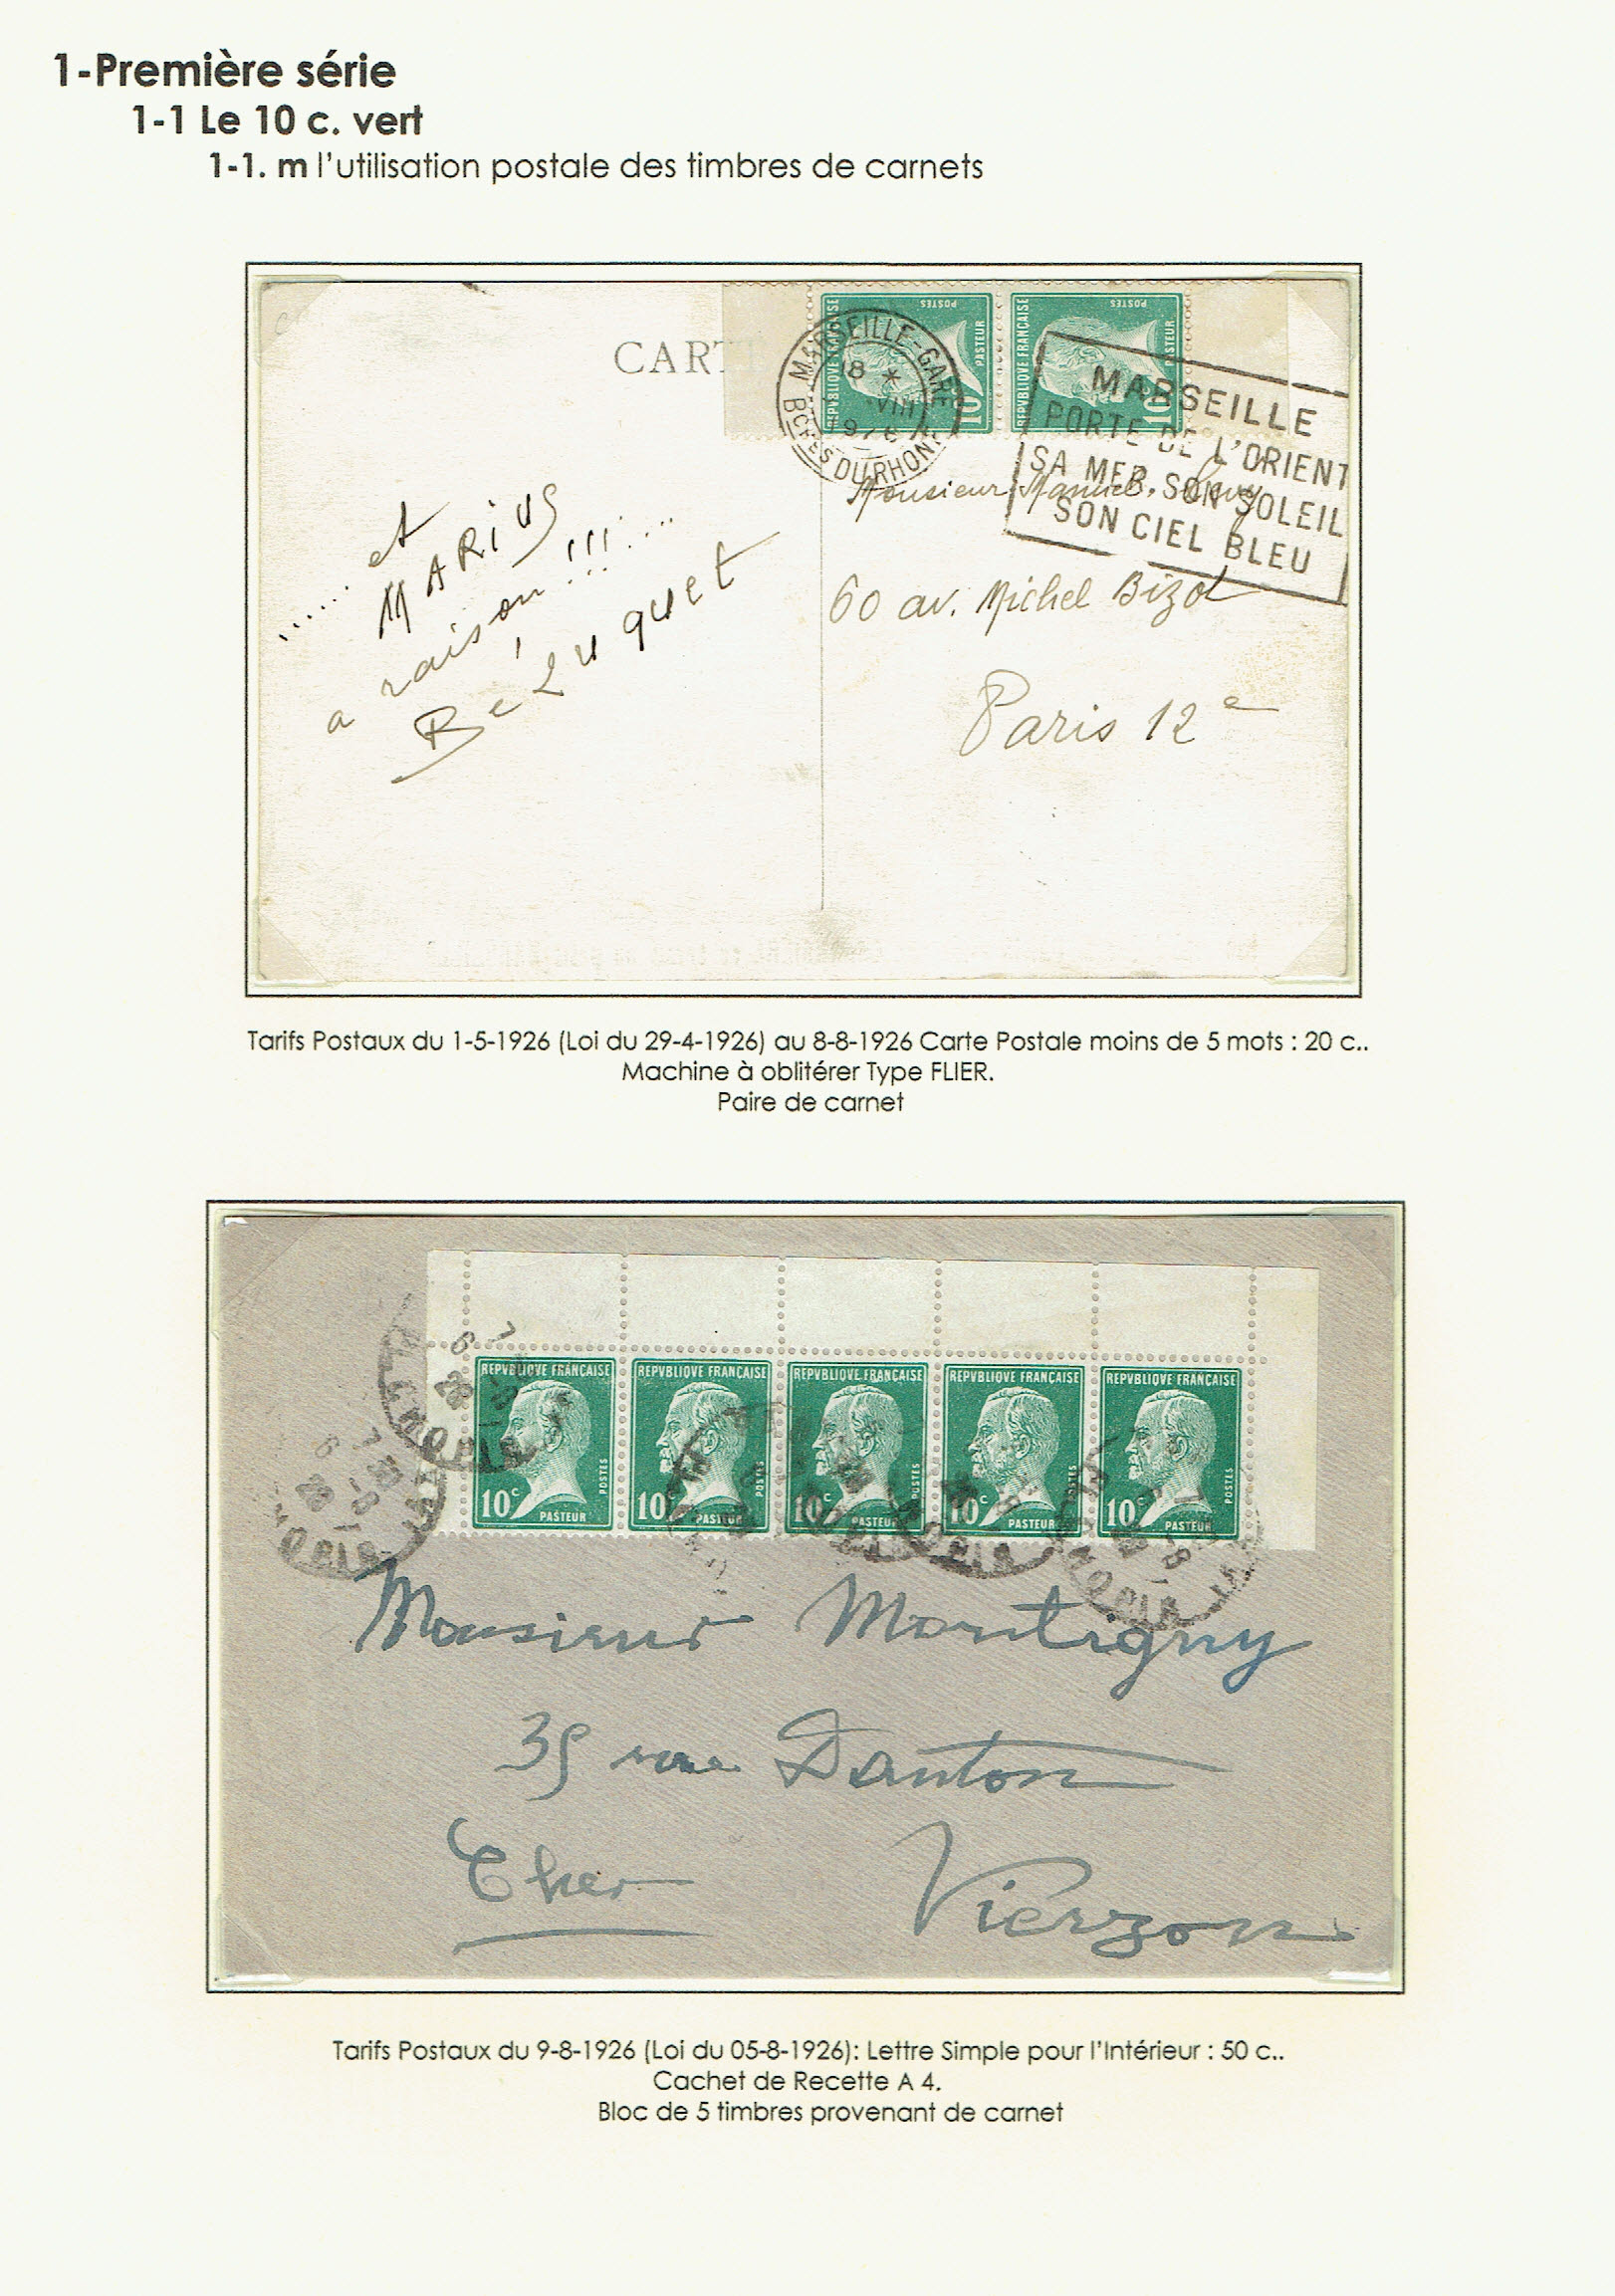 1-Première série
1-1 Le 10 c. vert
1-1. m l'utilisation postale des timbres de carnets
CART
REPVBLIQVE FRANÇAISE
POSTES
PASTEUR
10
REPVBLIQVE FRANÇAISE
POSTES
PASTEUR
10
MARSEILLE-GARE
18 *
VIII
BCHES DU RHONE
MARSEILLE
PORTE DE L'ORIENT
SA MER SON SOLEIL
SON CIEL BLEU
...... et
MARIUS
a raison !!! .....
Béluquet
Monsieur
60 av. Michel Bizot
Paris 12e
Tarifs Postaux du 1-5-1926 (Loi du 29-4-1926) au 8-8-1926 Carte Postale moins de 5 mots : 20 c..
Machine à oblitérer Type FLIER.
Paire de carnet
REPVBLIQVE FRANÇAISE
10c
PASTEUR
POSTES
REPVBLIQVE FRANÇAISE
10
PASTEUR
POSTES
REPVBLIQVE FRANÇAISE
10c
PASTEUR
POSTES
REPVBLIQVE FRANÇAISE
10c
PASTEUR
POSTES
REPVBLIQVE FRANÇAISE
10c
PASTEUR
POSTES
Monsieur Montigny
35 rue Danton
Cher Vierzon
Tarifs Postaux du 9-8-1926 (Loi du 05-8-1926): Lettre Simple pour l'Intérieur : 50 c..
Cachet de Recette A 4.
Bloc de 5 timbres provenant de carnet